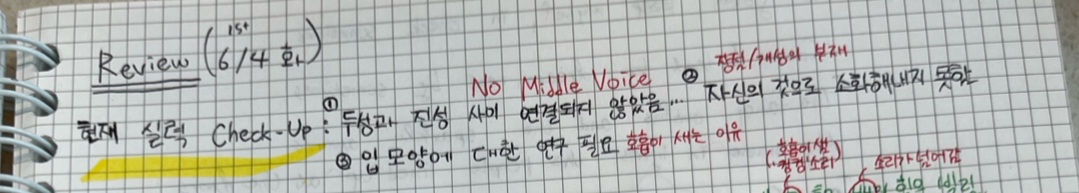 1st
Review (6/4 화)
No Middle Voice ② 쟁점/개성의 부재
현재 실력 Check-Up : ① 두성과 진성 사이 연결되지 않았음... 자신의 것으로 소화해내지 못함
③ 입 모양에 대한 연구 필요 호흡이 새는 이유
(호흡이 샘 소리) 소리가 넘어감